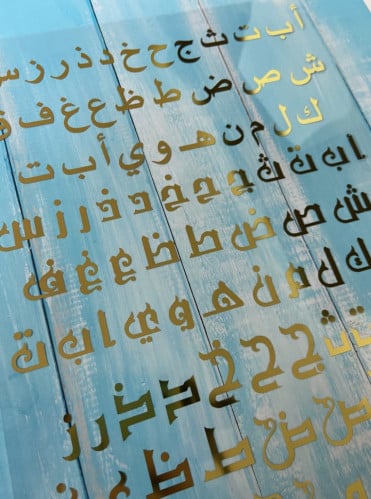 أ ب ت ث ج ح خ د ذ ر ز س
ش ص ض ط ظ ع غ ف ق
ك ل م ن هـ و ي أ ب ت
ا ب ت ث ج ح خ د ذ ر ز س
ش ص ض ط ظ ع غ ف
ك ل م ن هـ و ي ا ب ت
ت ث ج ح خ د ذ ر ز
ص ض ط ظ